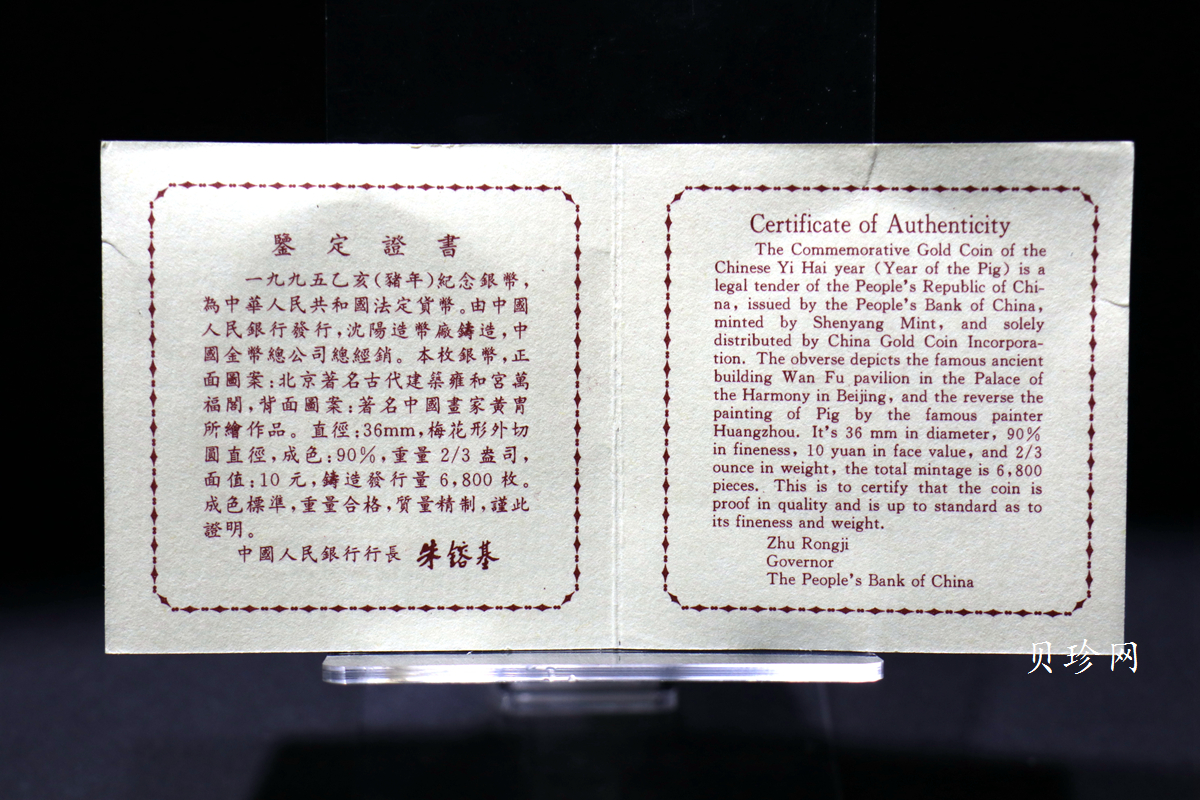 鑒定證書
一九九五乙亥(豬年)紀念銀幣,
為中華人民共和國法定貨幣。由中國
人民銀行發行,沈陽造幣廠鑄造,中
國金幣總公司總經銷。本枚銀幣,正
面圖案:北京著名古代建築雍和宮萬
福閣,背面圖案:著名中國畫家黃胄
所繪作品。直徑:36mm,梅花形外切
圓直徑,成色:90%,重量2/3盎司,
面值:10元,鑄造發行量6,800枚。
成色標準,重量合格,質量精制,謹此
證明。
中國人民銀行行長 朱鎔基
Certificate of Authenticity
The Commemorative Gold Coin of the
Chinese Yi Hai year (Year of the Pig) is a
legal tender of the People's Republic of Chi-
na, issued by the People's Bank of China,
minted by Shenyang Mint, and solely
distributed by China Gold Coin Incorpora-
tion. The obverse depicts the famous ancient
building Wan Fu pavilion in the Palace of
the Harmony in Beijing, and the reverse the
painting of Pig by the famous painter
Huangzhou. It's 36 mm in diameter, 90%
in fineness, 10 yuan in face value, and 2/3
ounce in weight, the total mintage is 6,800
pieces. This is to certify that the coin is
proof in quality and is up to standard as to
its fineness and weight.
Zhu Rongji
Governor
The People's Bank of China
贝珍网